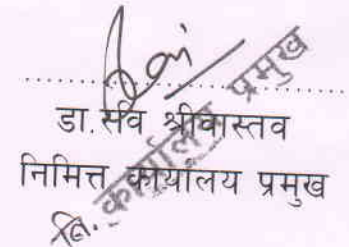 डा. सर्व श्रीवास्तव
निमित्त कार्यालय प्रमुख
नि. कार्यालय प्रमुख